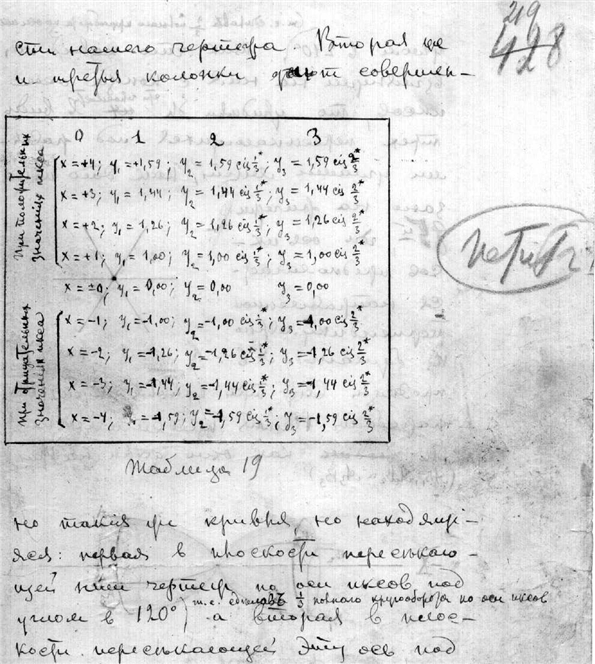 219
428
сти нашего чертежа. Вторая же
и третья колонки дают совершен-
0 1 2 3
При положительных значениях икса
x=+4; y₁=+1,59; y₂=1,59 cis 1/3*; y₃=1,59 cis 2/3*
x=+3; y₁=1,44; y₂=1,44 cis 1/3*; y₃=1,44 cis 2/3*
x=+2; y₁=1,26; y₂=1,26 cis 1/3*; y₃=1,26 cis 2/3*
x=+1; y₁=1,00; y₂=1,00 cis 1/3*; y₃=1,00 cis 2/3*
x=±0; y₁=0,00; y₂=0,00 y₃=0,00
при отрицательных значениях икса
x=-1; y₁=-1,00; y₂=-1,00 cis 1/3*; y₃=-1,00 cis 2/3*
x=-2; y₁=-1,26; y₂=-1,26 cis 1/3*; y₃=-1,26 cis 2/3*
x=-3; y₁=-1,44; y₂=-1,44 cis 1/3*; y₃=-1,44 cis 2/3*
x=-4; y₁=-1,59; y₂=-1,59 cis 1/3*; y₃=-1,59 cis 2/3*
петит
Таблица 19
но такия же кривыя, но находящі-
яся: первая в плоскости пересѣкаю-
щей наш чертеж по оси иксов под
т.е. 1/3 полного кругооборота по оси иксов
углом в 120°, а вторая в плос-
кости пересѣкающей эту ось под